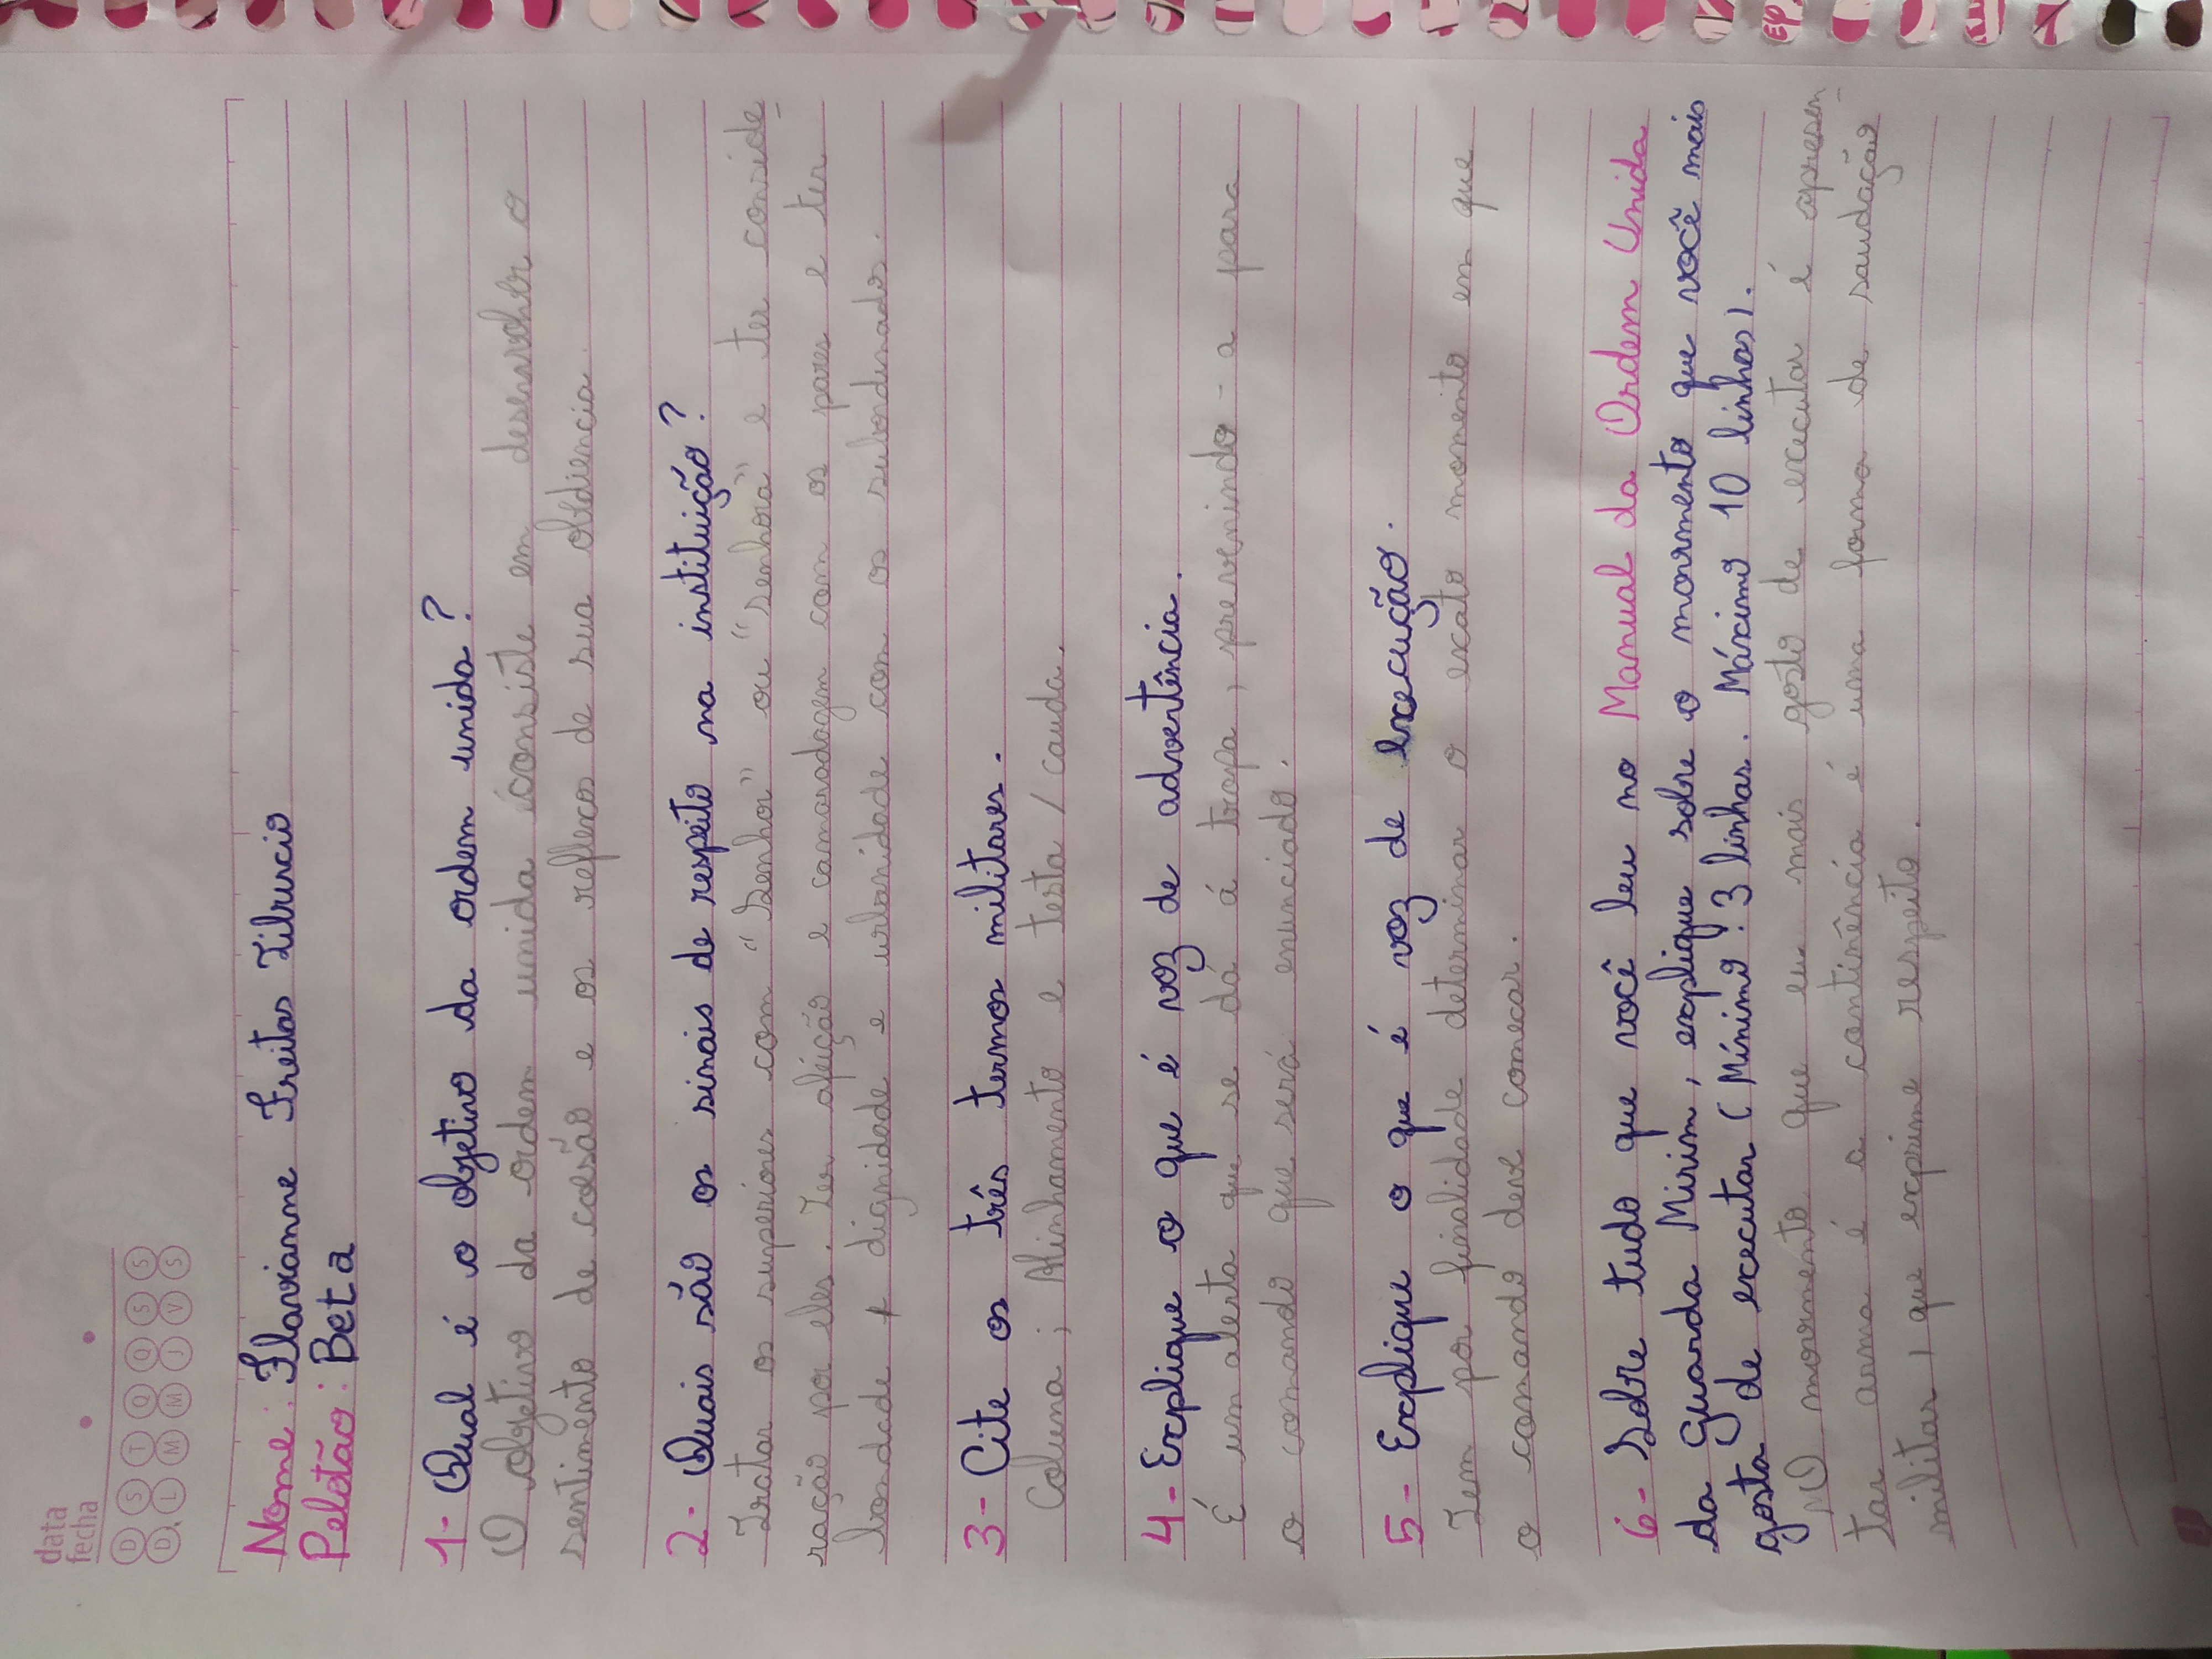 data
fecha
D S T Q Q S S
D L M M J V S
Nome: Flavianne Freitas Tiburcio
Pelotão: Beta
1- Qual é o objetivo da ordem unida?
O objetivo da ordem unida consiste em desenvolver o
sentimento de coesão e os reflexos de sua obediencia.
2- Quais são os sinais de respeito na instituição?
Tratar os superiores com "Senhor" ou "Senhora" e ter conside
ração por eles. Ter afeição e camaradagem com os pares e ter
bondade dignidade e urbanidade com os subordinados.
3- Cite os três termos militares.
Coluna; Alinhamento e testa / cauda.
4- Explique o que é voz de advertência.
É um alerta que se dá á tropa, prevenindo-a para
o comando que será enunciado.
5- Explique o que é voz de execução.
Tem por finalidade determinar o exato momento em que
o comando deve comecar.
6- Sobre tudo que você leu no Manual da Ordem Unida
da Guarda Mirim, explique sobre o movimento que você mais
gosta de executar (Mínimo: 3 linhas. Máximo 10 linhas).
O movimento que eu mais gosto de executar é apresen
tar arma é a continência é uma forma de saudação
militar, que exprime respeito.